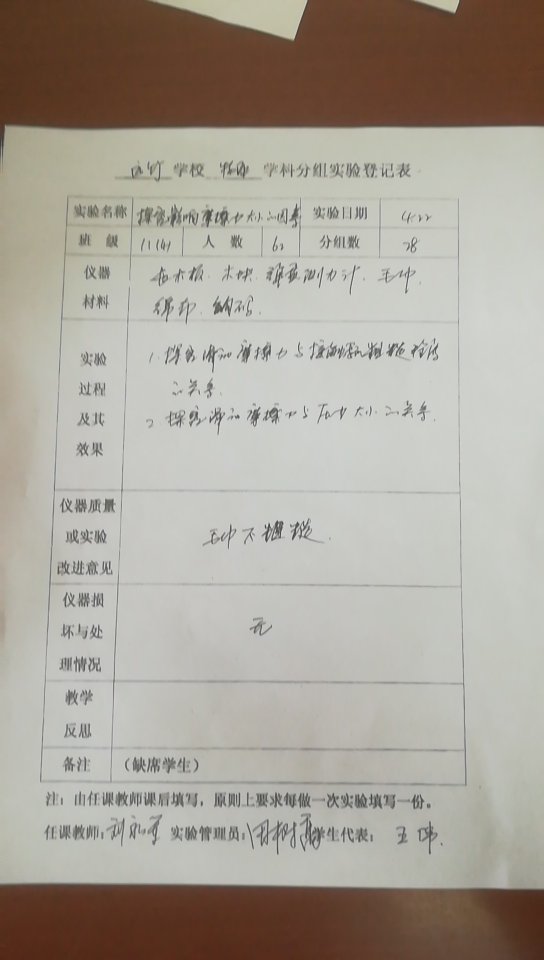 学校 物理 学科分组实验登记表
实验名称 探究影响摩擦力大小的因素 实验日期 4.22
班 级 11(4) 人 数 62 分组数 28
仪器材料 长木板、木块、弹簧测力计、毛巾、
棉布、钩码。
实验过程及其效果 1、探究滑动摩擦力与接触面粗糙程度
的关系
2、探究滑动摩擦力与压力大小的关系.
仪器质量或实验改进意见 毛巾不粗糙.
仪器损坏与处理情况 无
教学反思
备注 (缺席学生)
注:由任课教师课后填写,原则上要求每做一次实验填写一份。
任课教师: 实验管理员: 田树 学生代表: 王伟